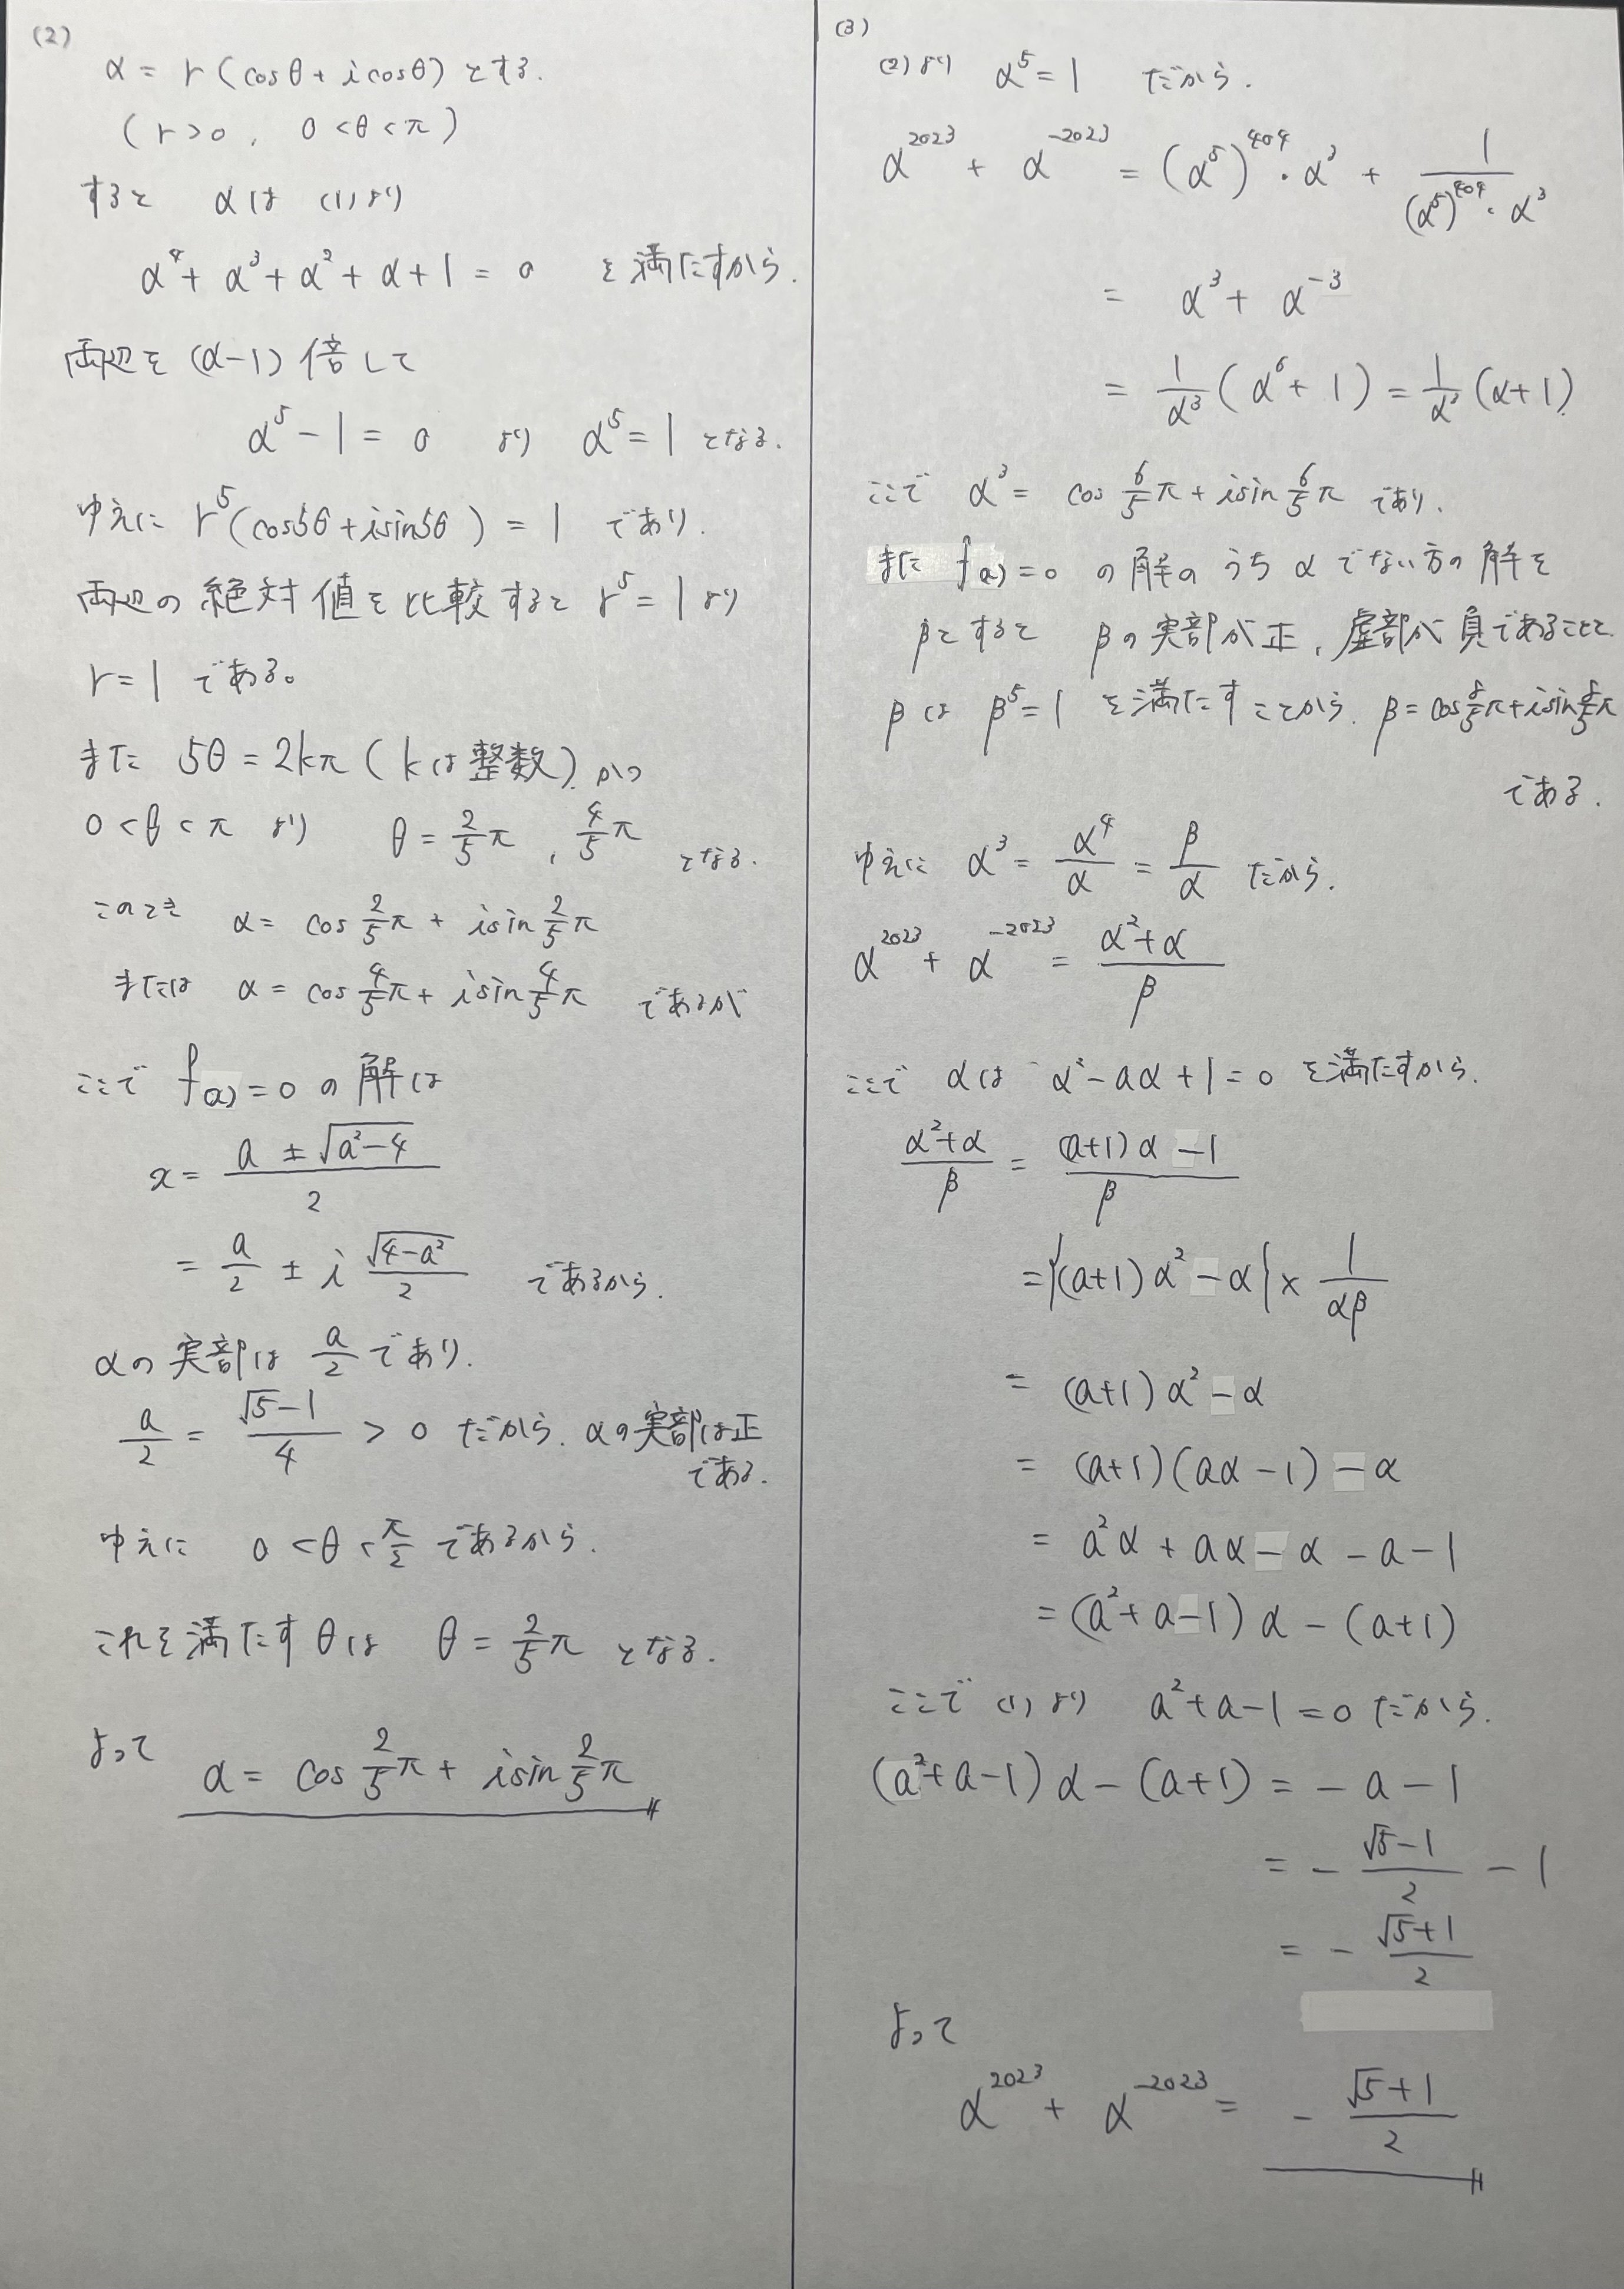 (2)
α = r (cosθ + i cosθ) とする.
(r > 0 , 0 < θ < π)
すると αは (1)より
α⁴ + α³ + α² + α + 1 = 0 を満たすから.
両辺を (α-1) 倍して
α⁵ - 1 = 0 より α⁵ = 1 となる.
ゆえに r⁵(cos5θ + i sin5θ) = 1 であり.
両辺の 絶対値を比較すると r⁵ = 1 より
r = 1 である。
また 5θ = 2kπ (kは整数) かつ
0 < θ < π より θ = 2/5 π , 4/5 π となる.
このとき α = cos 2/5 π + i sin 2/5 π
または α = cos 4/5 π + i sin 4/5 π であるが
ここで f(x) = 0 の解は
x = (a ± √(a²-4)) / 2
= a/2 ± i √(4-a²)/2 であるから.
αの実部は a/2 であり.
a/2 = (√5-1)/4 > 0 だから. αの実部は正
である.
ゆえに 0 < θ < π/2 であるから.
これを満たすθは θ = 2/5 π となる.
よって α = cos 2/5 π + i sin 2/5 π
(3)
(2)より α⁵ = 1 だから.
α²⁰²³ + α⁻²⁰²³ = (α⁵)⁴⁰⁴・α³ + 1/((α⁵)⁴⁰⁴・α³)
= α³ + α⁻³
= 1/α³ (α⁶ + 1) = 1/α³ (α+1)
ここで α³ = cos 6/5 π + i sin 6/5 π であり.
また f(x) = 0 の解の うち α でない方の解を
βとすると βの実部が正, 虚部が負であることと
βは β⁵ = 1 を満たすことから. β = cos 8/5 π + i sin 8/5 π
である.
ゆえに α³ = α⁴/α = β/α だから.
α²⁰²³ + α⁻²⁰²³ = (α²+α)/β
ここで αは α² - aα + 1 = 0 を満たすから.
(α²+α)/β = ((a+1)α - 1)/β
= {(a+1)α² - α} × 1/(αβ)
= (a+1)α² - α
= (a+1)(aα - 1) - α
= a²α + aα - α - a - 1
= (a² + a - 1)α - (a+1)
ここで (1)より a² + a - 1 = 0 だから.
(a² + a - 1)α - (a+1) = - a - 1
= - (√5-1)/2 - 1
= - (√5+1)/2
よって
α²⁰²³ + α⁻²⁰²³ = - (√5+1)/2